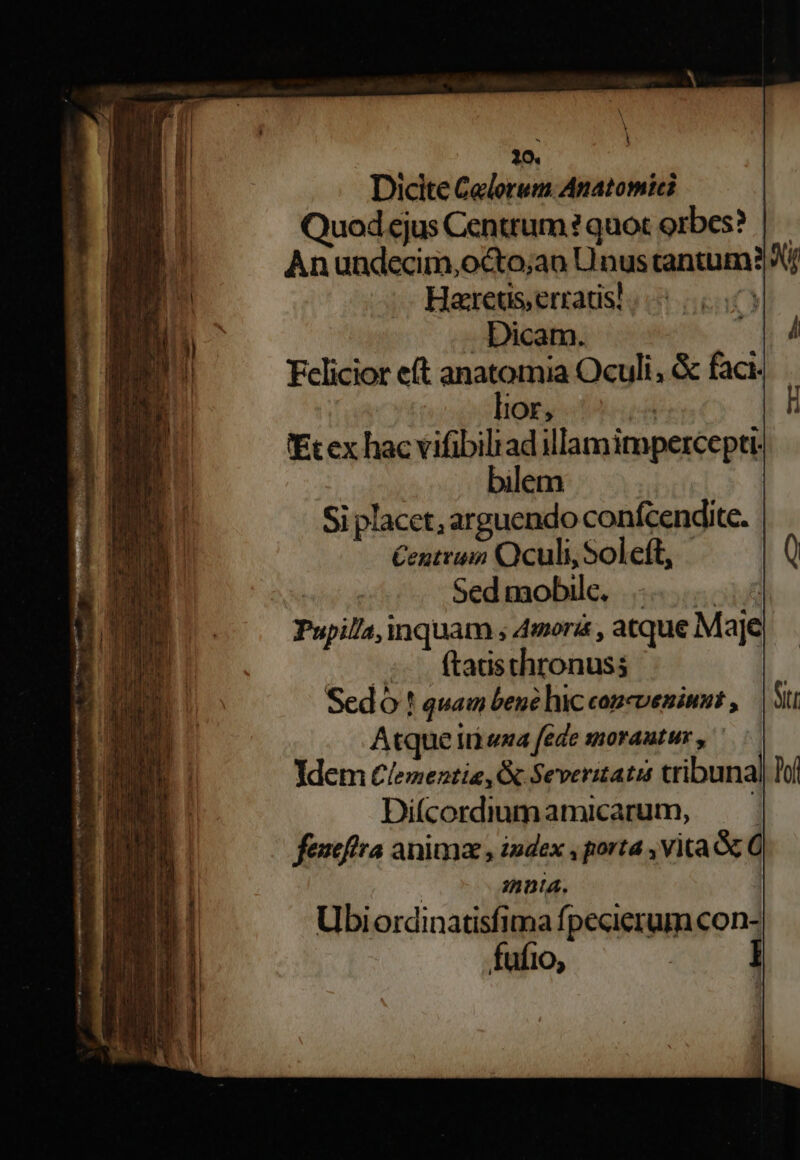 10.
Dicite Cœlorum Anatomici
Quod ejus Centrum? quot orbes?
An undecim, octo, an Unus tantum?
Hæretis, erratis!
Dicam.
Felicior eſt anatomia Oculi, & faci-
lior,
Et ex hac viſibili ad illam impercepti-
bilem
Si placet, arguendo conſcendite.
Centrum Oculi, Sol eſt,
Sed mobile.
Pupilla, inquam, Amoris, atque Maje
ſtatis thronus;
Sed ò! quam benè hic conveniunt,
Atque in una ſede morantur,
Idem Clementiæ, & Severitatis tribunal
Diſcordium amicarum,
feneſtra animæ, index, porta, vita & 
mnia.
Ubi ordinatiſſima ſpecierum con-
fuſio,